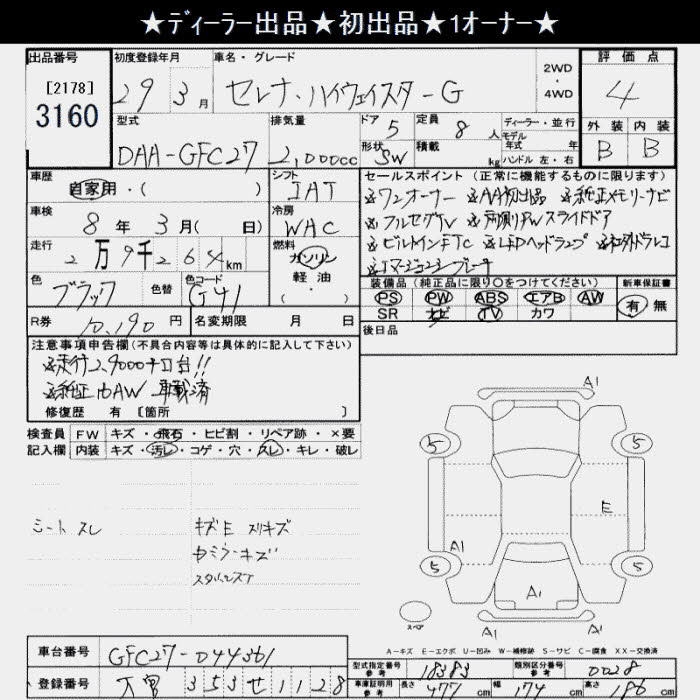 ★ディーラー出品★初出品★1オーナー★
出品番号 初度登録年月 車名・グレード 2WD ・ 4WD 評価点
[2178]
3160
29年3月 セレナ・ハイウェイスターG 4
型式 排気量 ドア 5 定員 8人 ディーラー・並行 外装 内装
モデル年式 年
DAA-GFC27 2,000cc 形状 SW 積載 kg ハンドル 左・右 B B
車歴 シフト セールスポイント (正常に機能するものに限ります)
自家用・( ) IAT ※ワンオーナー ※AA初出品 ※純正メモリーナビ
車検 冷房 ※フルセグTV ※両側PWスライドドア
8年3月( 日) WAC ※ビルトインETC ※LEDヘッドランプ ※社外ドラレコ
走行 燃料 ※エマージェンシーブレーキ
2万9千264km ガソリン・軽油・( )
色 色替 色コード 装備品(純正品に限り○をつけてください) 新車保証書
ブラック G41 PS PW ABS エアB AW 有 無
SR ナビ TV カワ
R券 10,190円 名変期限 月 日 後日品
注意事項申告欄(不具合内容等は具体的に記入して下さい)
※走行2.9000キロ台!!
※純正16AW 車載済
修復歴 有 [箇所 ]
検査員記入欄 FW キズ・飛石・ヒビ割・リペア跡・×要
内装 キズ・汚レ・コゲ・穴・スレ・キレ・破レ
シート スレ キズE スリキズ
カミラーキズ
A1
5 5
E
A1
5 5
A1
スペア
A1 A1
A-キズ E-エクボ U-凹み W-補修跡 S-サビ C-腐食 XX-交換済
車台番号 GFC27-044361
型式指定番号 参考 18383 類別区分番号 参考 0028
登録番号 大宮 353せ1128
車庫証明用 参考 長さ 477cm 幅 174cm 高さ 186cm